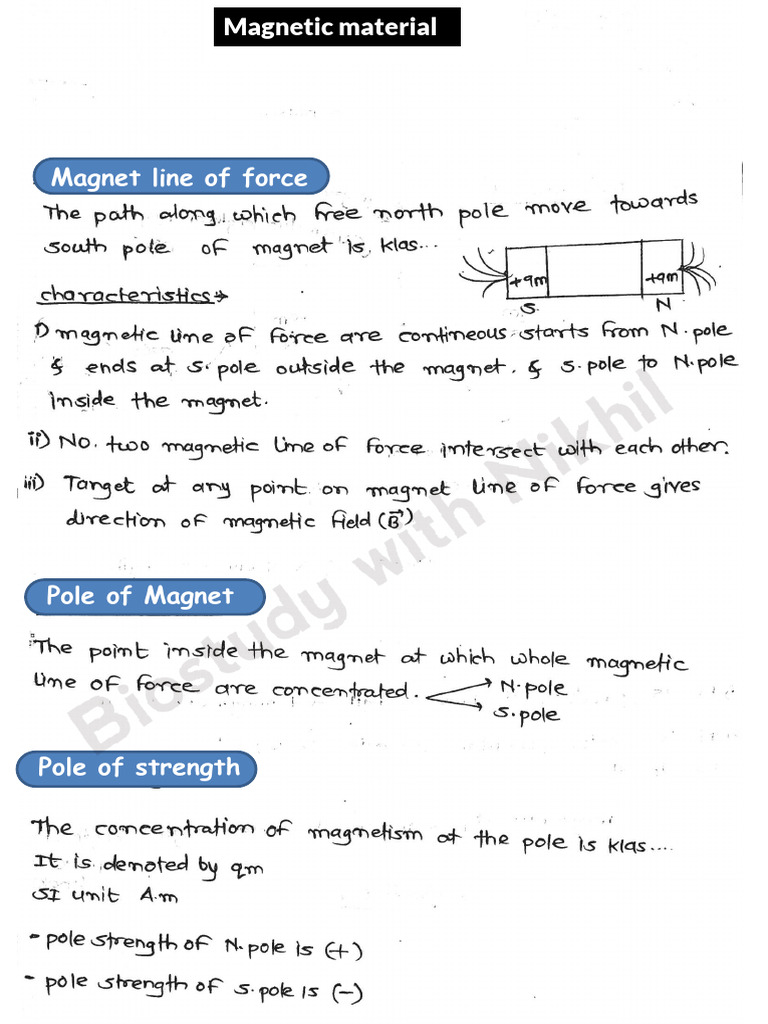 Magnetic material
Magnet line of force
The path along which free north pole move towards
south pole of magnet is klas...
+qm
+qm
S
N
characteristics:→
i) magnetic line of force are contineous starts from N.pole
& ends at S.pole outside the magnet. & S.pole to N.pole
inside the magnet.
ii) No. two magnetic line of force intersect with each other.
iii) Tanget at any point on magnet line of force gives
direction of magnetic field (B⃗)
Biostudy with Nikhil
Pole of Magnet
The point inside the magnet at which whole magnetic
line of force are concentrated. → N.pole
→ S.pole
Pole of strength
The concentration of magnetism at the pole is klas....
It is denoted by qm
SI unit A.m
- pole strength of N.pole is (+)
- pole strength of S.pole is (-)